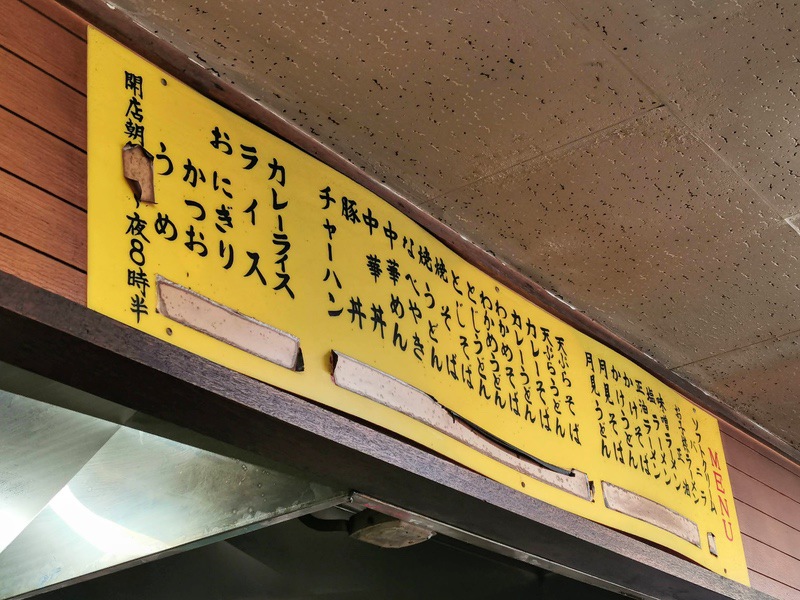 MENU
ソフトクリーム
味噌ラーメン
塩ラーメン
正油ラーメン
かけそば
かけうどん
月見そば
月見うどん
天ぷらそば
天ぷらうどん
カレーそば
カレーうどん
わかめそば
わかめうどん
とじそば
とじうどん
焼そば
焼うどん
なべやき
中華めん
中華丼
豚丼
チャーハン
カレーライス
ライス
おにぎり
かつお
うめ
開店朝 夜8時半